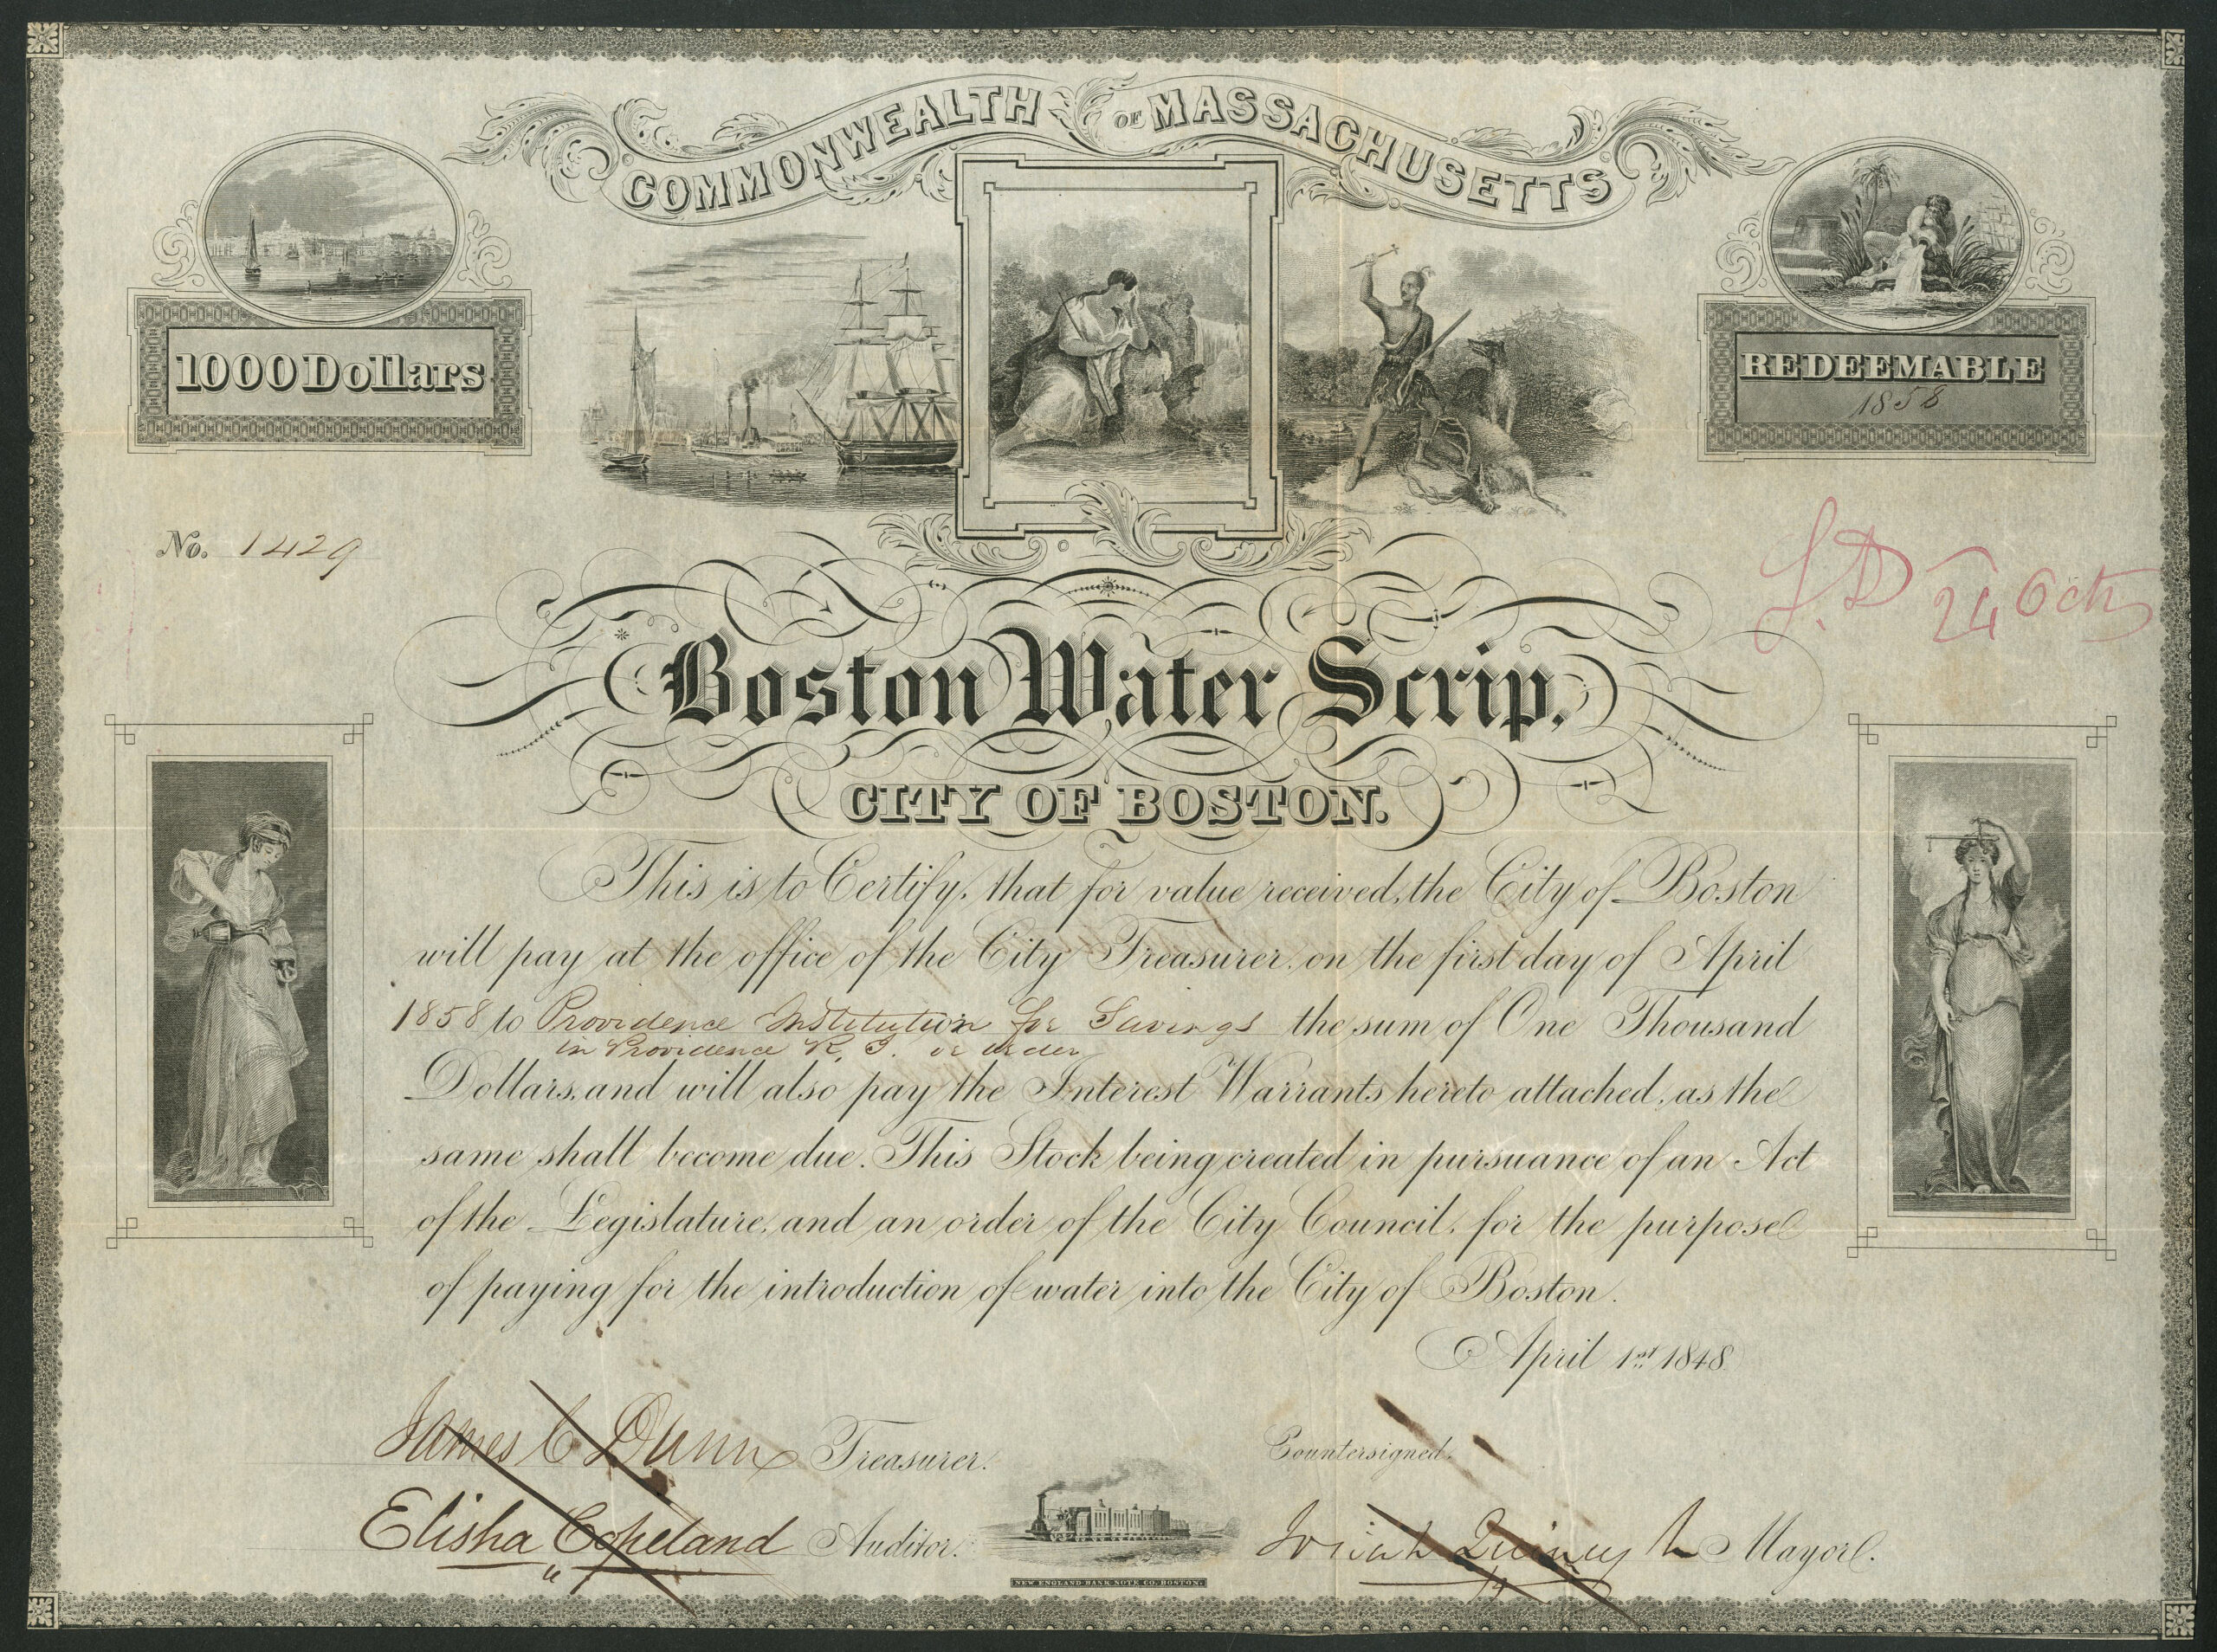 COMMONWEALTH OF MASSACHUSETTS
1000 Dollars
REDEEMABLE
1858
No. 1429
24 Oct
Boston Water Scrip.
CITY OF BOSTON.
This is to Certify, that for value received, the City of Boston
will pay at the office of the City Treasurer, on the first day of April
1858 to Providence Institution for Savings the sum of One Thousand
in Providence R. I. or order
Dollars, and will also pay the Interest Warrants hereto attached, as the
same shall become due. This Stock being created in pursuance of an Act
of the Legislature, and an order of the City Council, for the purpose
of paying for the introduction of water into the City of Boston.
April 1st 1848
James C Dunn Treasurer.
Countersigned.
Elisha Copeland Auditor.
Josiah Quincy Jr Mayor.
NEW ENGLAND BANK NOTE CO. BOSTON.